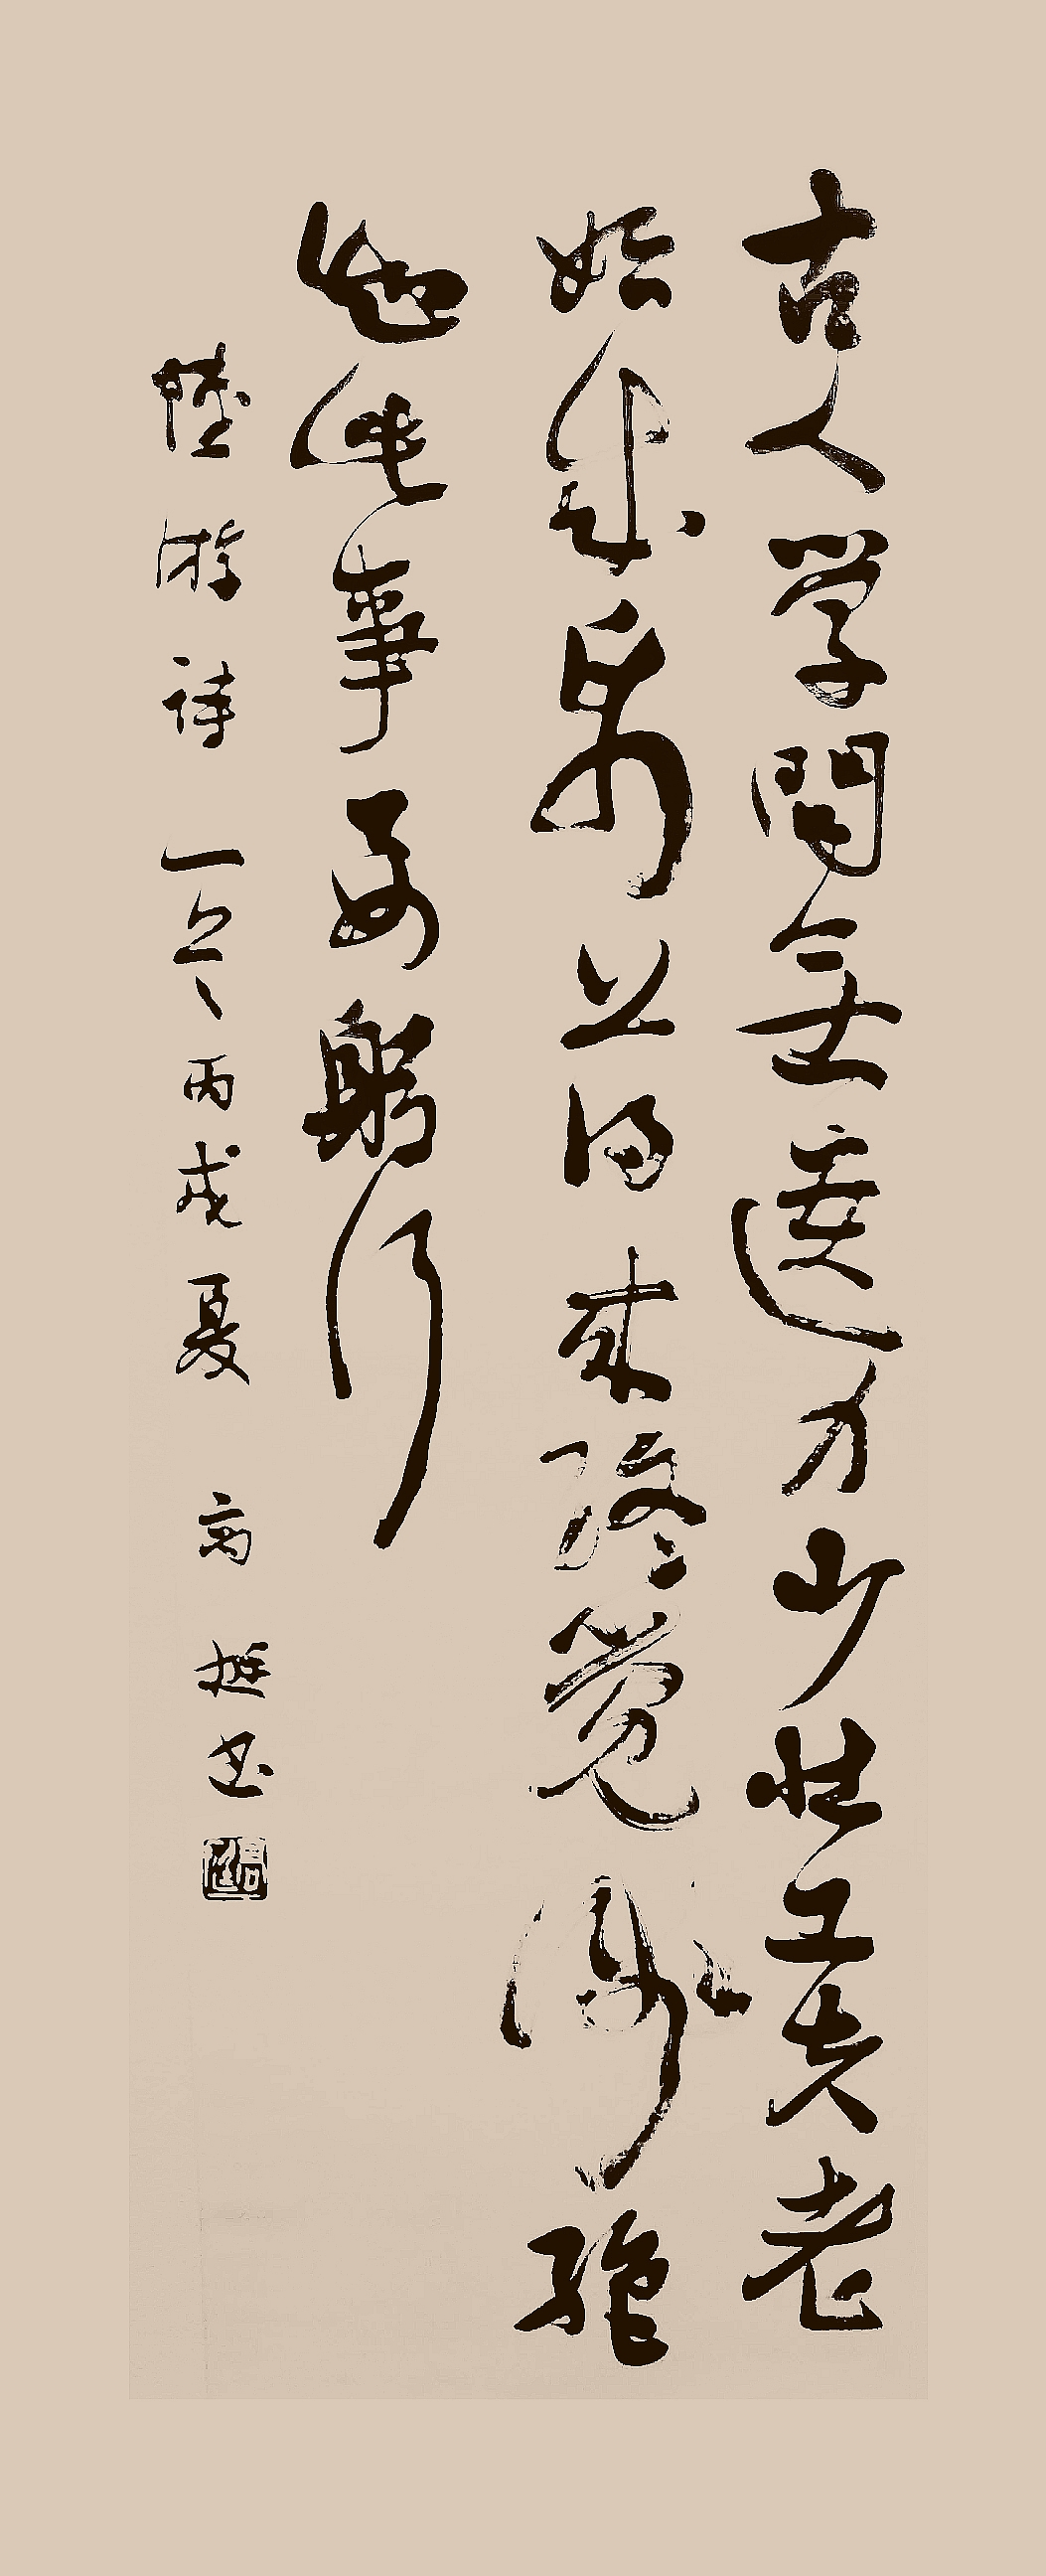 古人学問無遺力少壮工夫老
始成帋上得来終觉淺絶
知此事要躬行
陸游詩一首丙戌夏高挺书